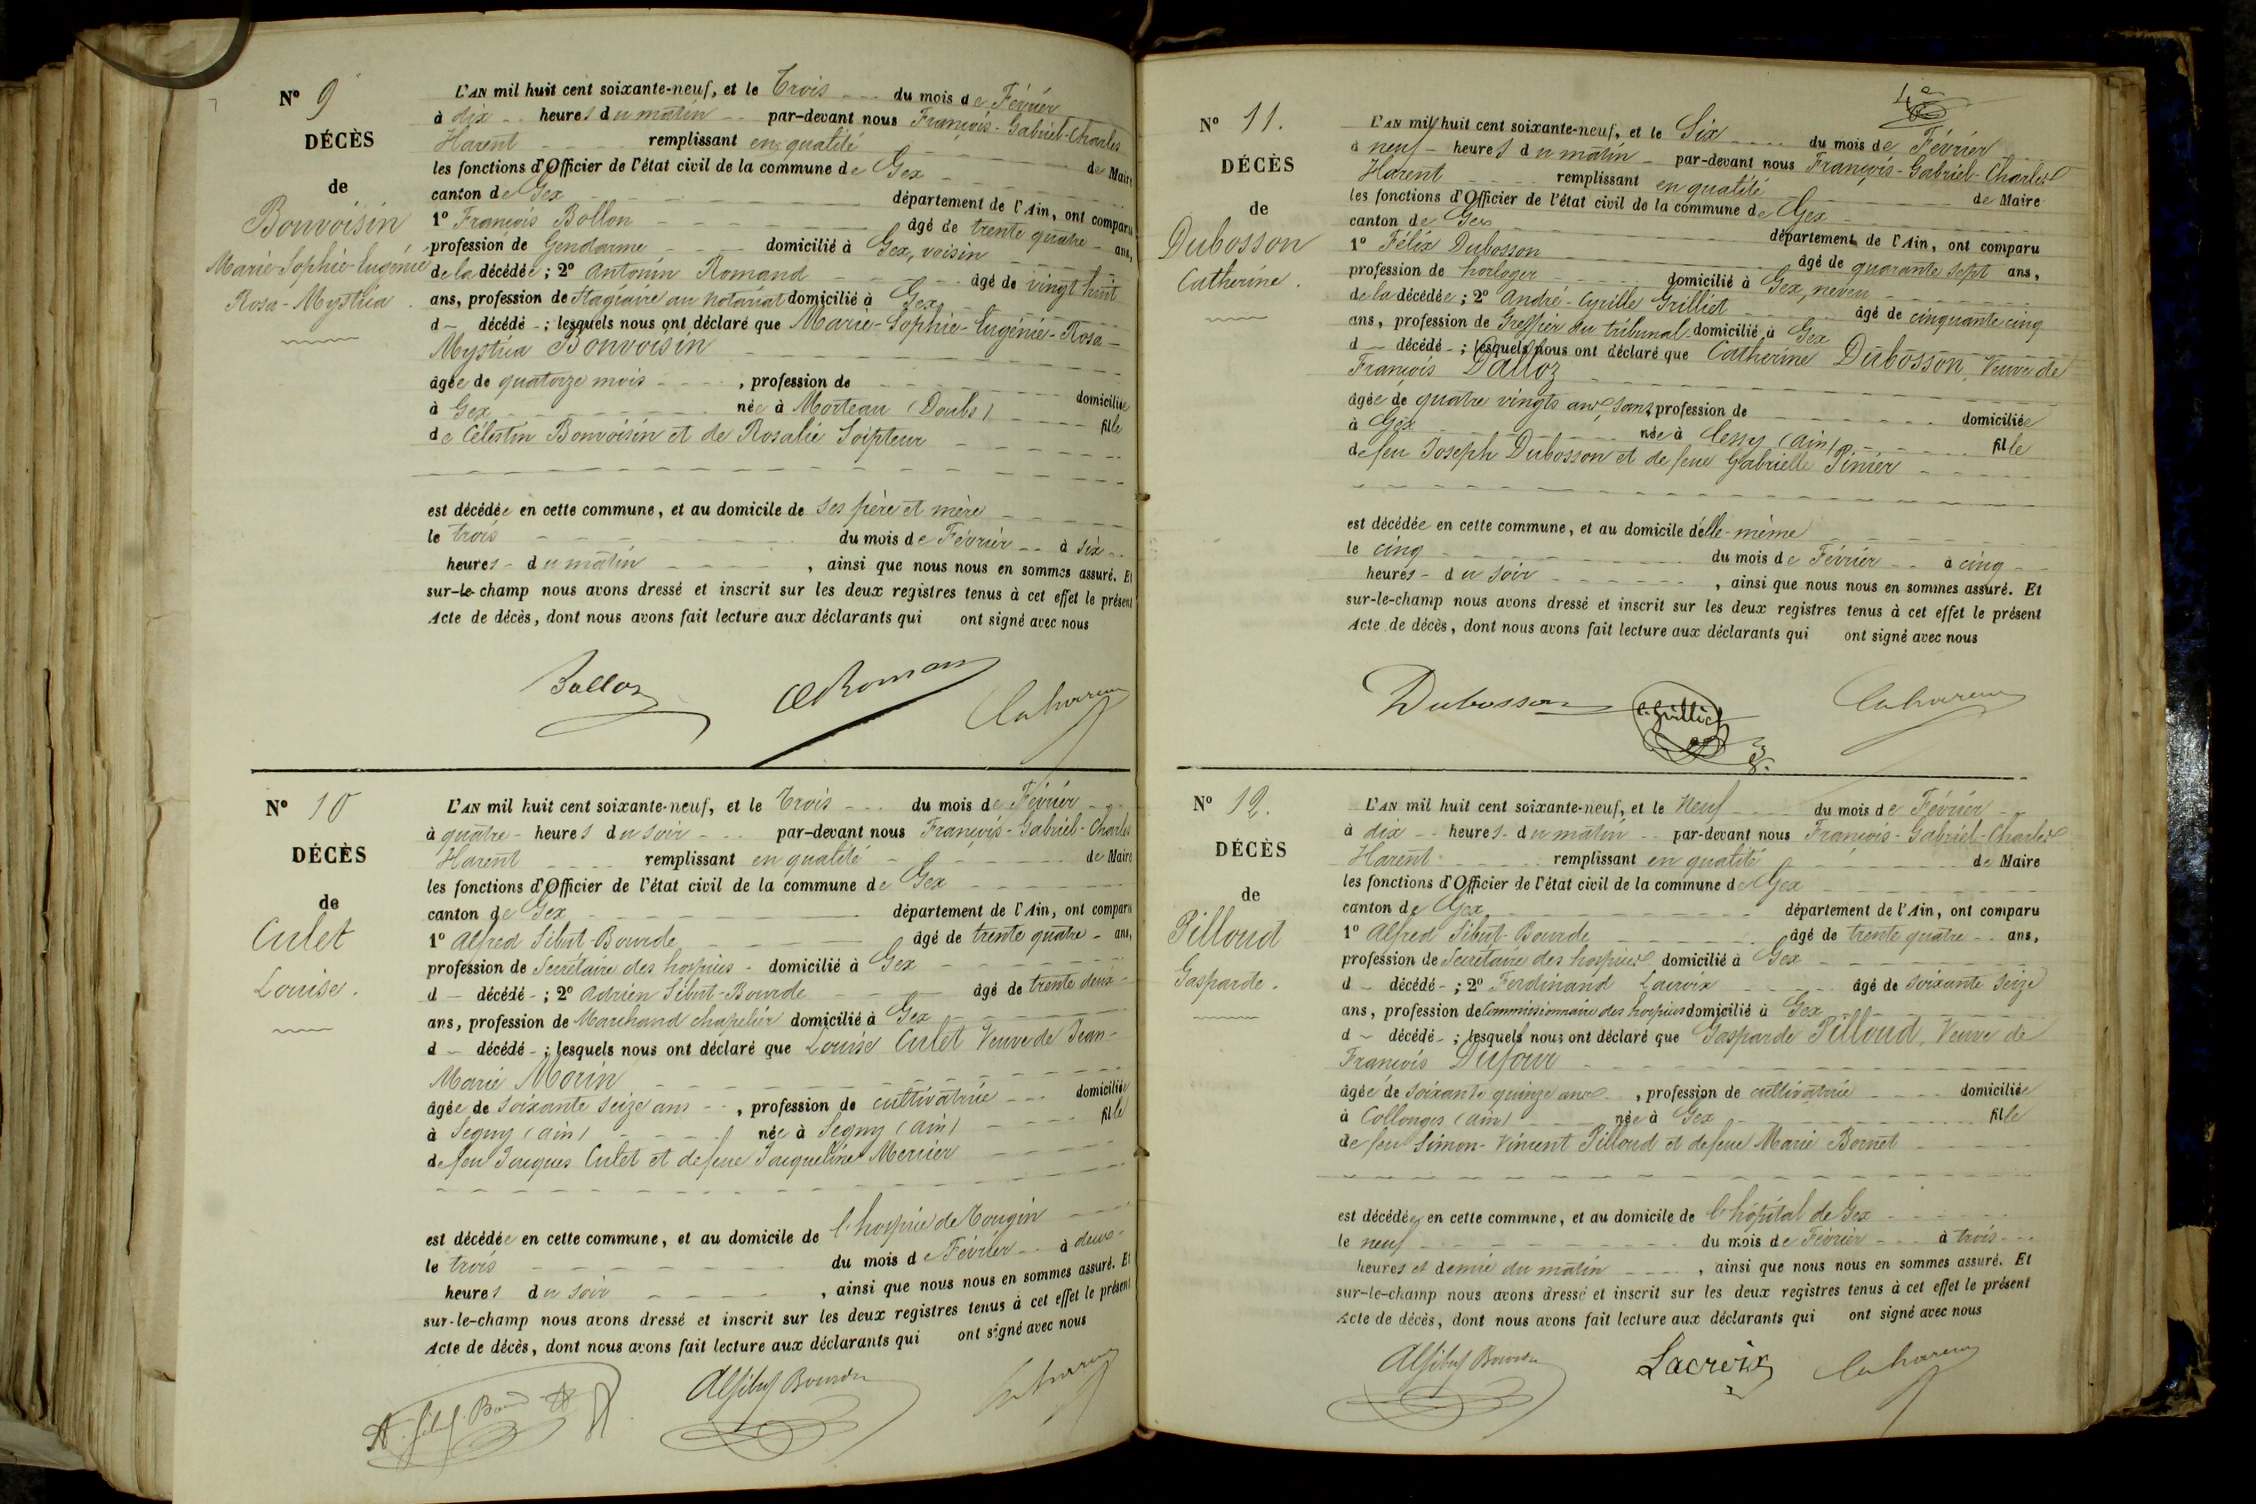 Nº 9
DÉCÈS
de
Bonvoisin
Marie-Sophie-Eugénie
Rosa-Mystica.
L'AN mil huit cent soixante-neuf, et le Trois du mois de Février
à dix heures du matin par-devant nous François-Gabriel-Charles
Harent remplissant en qualité de Maire
les fonctions d'Officier de l'état civil de la commune de Gex
canton de Gex département de l'Ain, ont comparu
1º François Bollon âgé de trente quatre ans,
profession de Gendarme domicilié à Gex, voisin
de la décédée; 2º Antonin Romand âgé de vingt huit
ans, profession de stagiaire au notariat domicilié à Gex
d décédé; lesquels nous ont déclaré que Marie-Sophie-Eugénie-Rosa-
Mystica Bonvoisin
âgée de quatorze mois, profession de domiciliée
à Gex née à Morteau (Doubs) fille
de Célestin Bonvoisin et de Rosalie
est décédée en cette commune, et au domicile de ses père et mère
le trois du mois de Février à six
heures du matin, ainsi que nous nous en sommes assuré. Et
sur-le-champ nous avons dressé et inscrit sur les deux registres tenus à cet effet le présent
Acte de décès, dont nous avons fait lecture aux déclarants qui ont signé avec nous
Nº 10
DÉCÈS
de
Culet
Louise.
L'AN mil huit cent soixante-neuf, et le Trois du mois de Février
à quatre heures du soir par-devant nous François-Gabriel-Charles
Harent remplissant en qualité de Maire
les fonctions d'Officier de l'état civil de la commune de Gex
canton de Gex département de l'Ain, ont comparu
1º Alfred Sibut-Bourde âgé de trente quatre ans,
profession de Secrétaire des hospices domicilié à Gex
d décédé; 2º Adrien Sibut-Bourde âgé de trente deux
ans, profession de Marchand chapelier domicilié à Gex
d décédé; lesquels nous ont déclaré que Louise Culet Veuve de Jean-
Marie Morin
âgée de soixante seize ans, profession de cultivatrice domiciliée
à Segny (Ain) née à Segny (Ain) fille
de feu Jacques Culet et de feue Jacqueline Mercier
est décédée en cette commune, et au domicile de l'hospice de Tougin
le trois du mois de Février à deux
heures du soir, ainsi que nous nous en sommes assuré. Et
sur-le-champ nous avons dressé et inscrit sur les deux registres tenus à cet effet le présent
Acte de décès, dont nous avons fait lecture aux déclarants qui ont signé avec nous
Nº 11.
DÉCÈS
de
Dubosson
Catherine.
L'AN mil huit cent soixante-neuf, et le Six du mois de Février
à neuf heures du matin par-devant nous François-Gabriel-Charles
Harent remplissant en qualité de Maire
les fonctions d'Officier de l'état civil de la commune de Gex
canton de Gex département de l'Ain, ont comparu
1º Félix Dubosson âgé de quarante sept ans,
profession de horloger domicilié à Gex, neveu
de la décédée; 2º André-Cyrille Grilliet âgé de cinquante cinq
ans, profession de Greffier du tribunal domicilié à Gex
d décédé; lesquels nous ont déclaré que Catherine Dubosson, Veuve de
François Dalloz
âgée de quatre vingts ans, sans profession de domiciliée
à Gex née à Cessy (Ain) fille
de feu Joseph Dubosson et de feue Gabrielle Pinier
est décédée en cette commune, et au domicile d'elle-même
le cinq du mois de Février à cinq
heures du soir, ainsi que nous nous en sommes assuré. Et
sur-le-champ nous avons dressé et inscrit sur les deux registres tenus à cet effet le présent
Acte de décès, dont nous avons fait lecture aux déclarants qui ont signé avec nous
Dubosson
Nº 12.
DÉCÈS
de
Pilloud
Gasparde.
L'AN mil huit cent soixante-neuf, et le Neuf du mois de Février
à dix heures du matin par-devant nous François-Gabriel-Charles
Harent remplissant en qualité de Maire
les fonctions d'Officier de l'état civil de la commune de Gex
canton de Gex département de l'Ain, ont comparu
1º Alfred Sibut-Bourde âgé de trente quatre ans,
profession de Secrétaire des hospices domicilié à Gex
d décédé; 2º Ferdinand Lacroix âgé de soixante seize
ans, profession de Commissionnaire des hospices domicilié à Gex
d décédé; lesquels nous ont déclaré que Gasparde Pilloud, Veuve de
François Dufour
âgée de soixante quinze ans, profession de cultivatrice domiciliée
à Collonges (Ain) née à Gex fille
de feu Simon-Vincent Pilloud et de feue Marie Bornet
est décédée en cette commune, et au domicile de l'hôpital de Gex
le neuf du mois de Février à trois
heures et demie du matin, ainsi que nous nous en sommes assuré. Et
sur-le-champ nous avons dressé et inscrit sur les deux registres tenus à cet effet le présent
Acte de décès, dont nous avons fait lecture aux déclarants qui ont signé avec nous
Lacroix